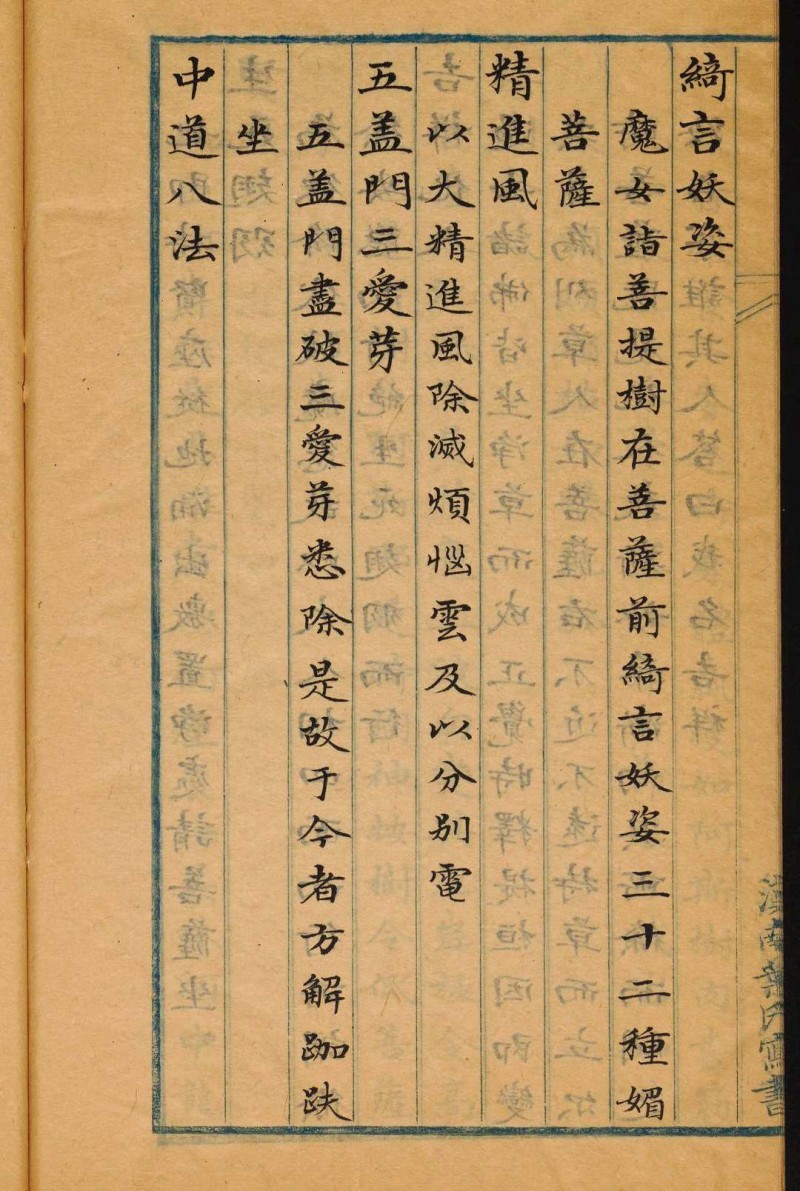 綺言妖姿
魔女詣菩提樹在菩薩前綺言妖姿三十二種媚
菩薩
精進風
以大精進風除滅煩惱雲及以分別電
五盖門三愛芽
五盖門盡破三愛芽悉除是故于今者方解跏趺
坐
中道八法